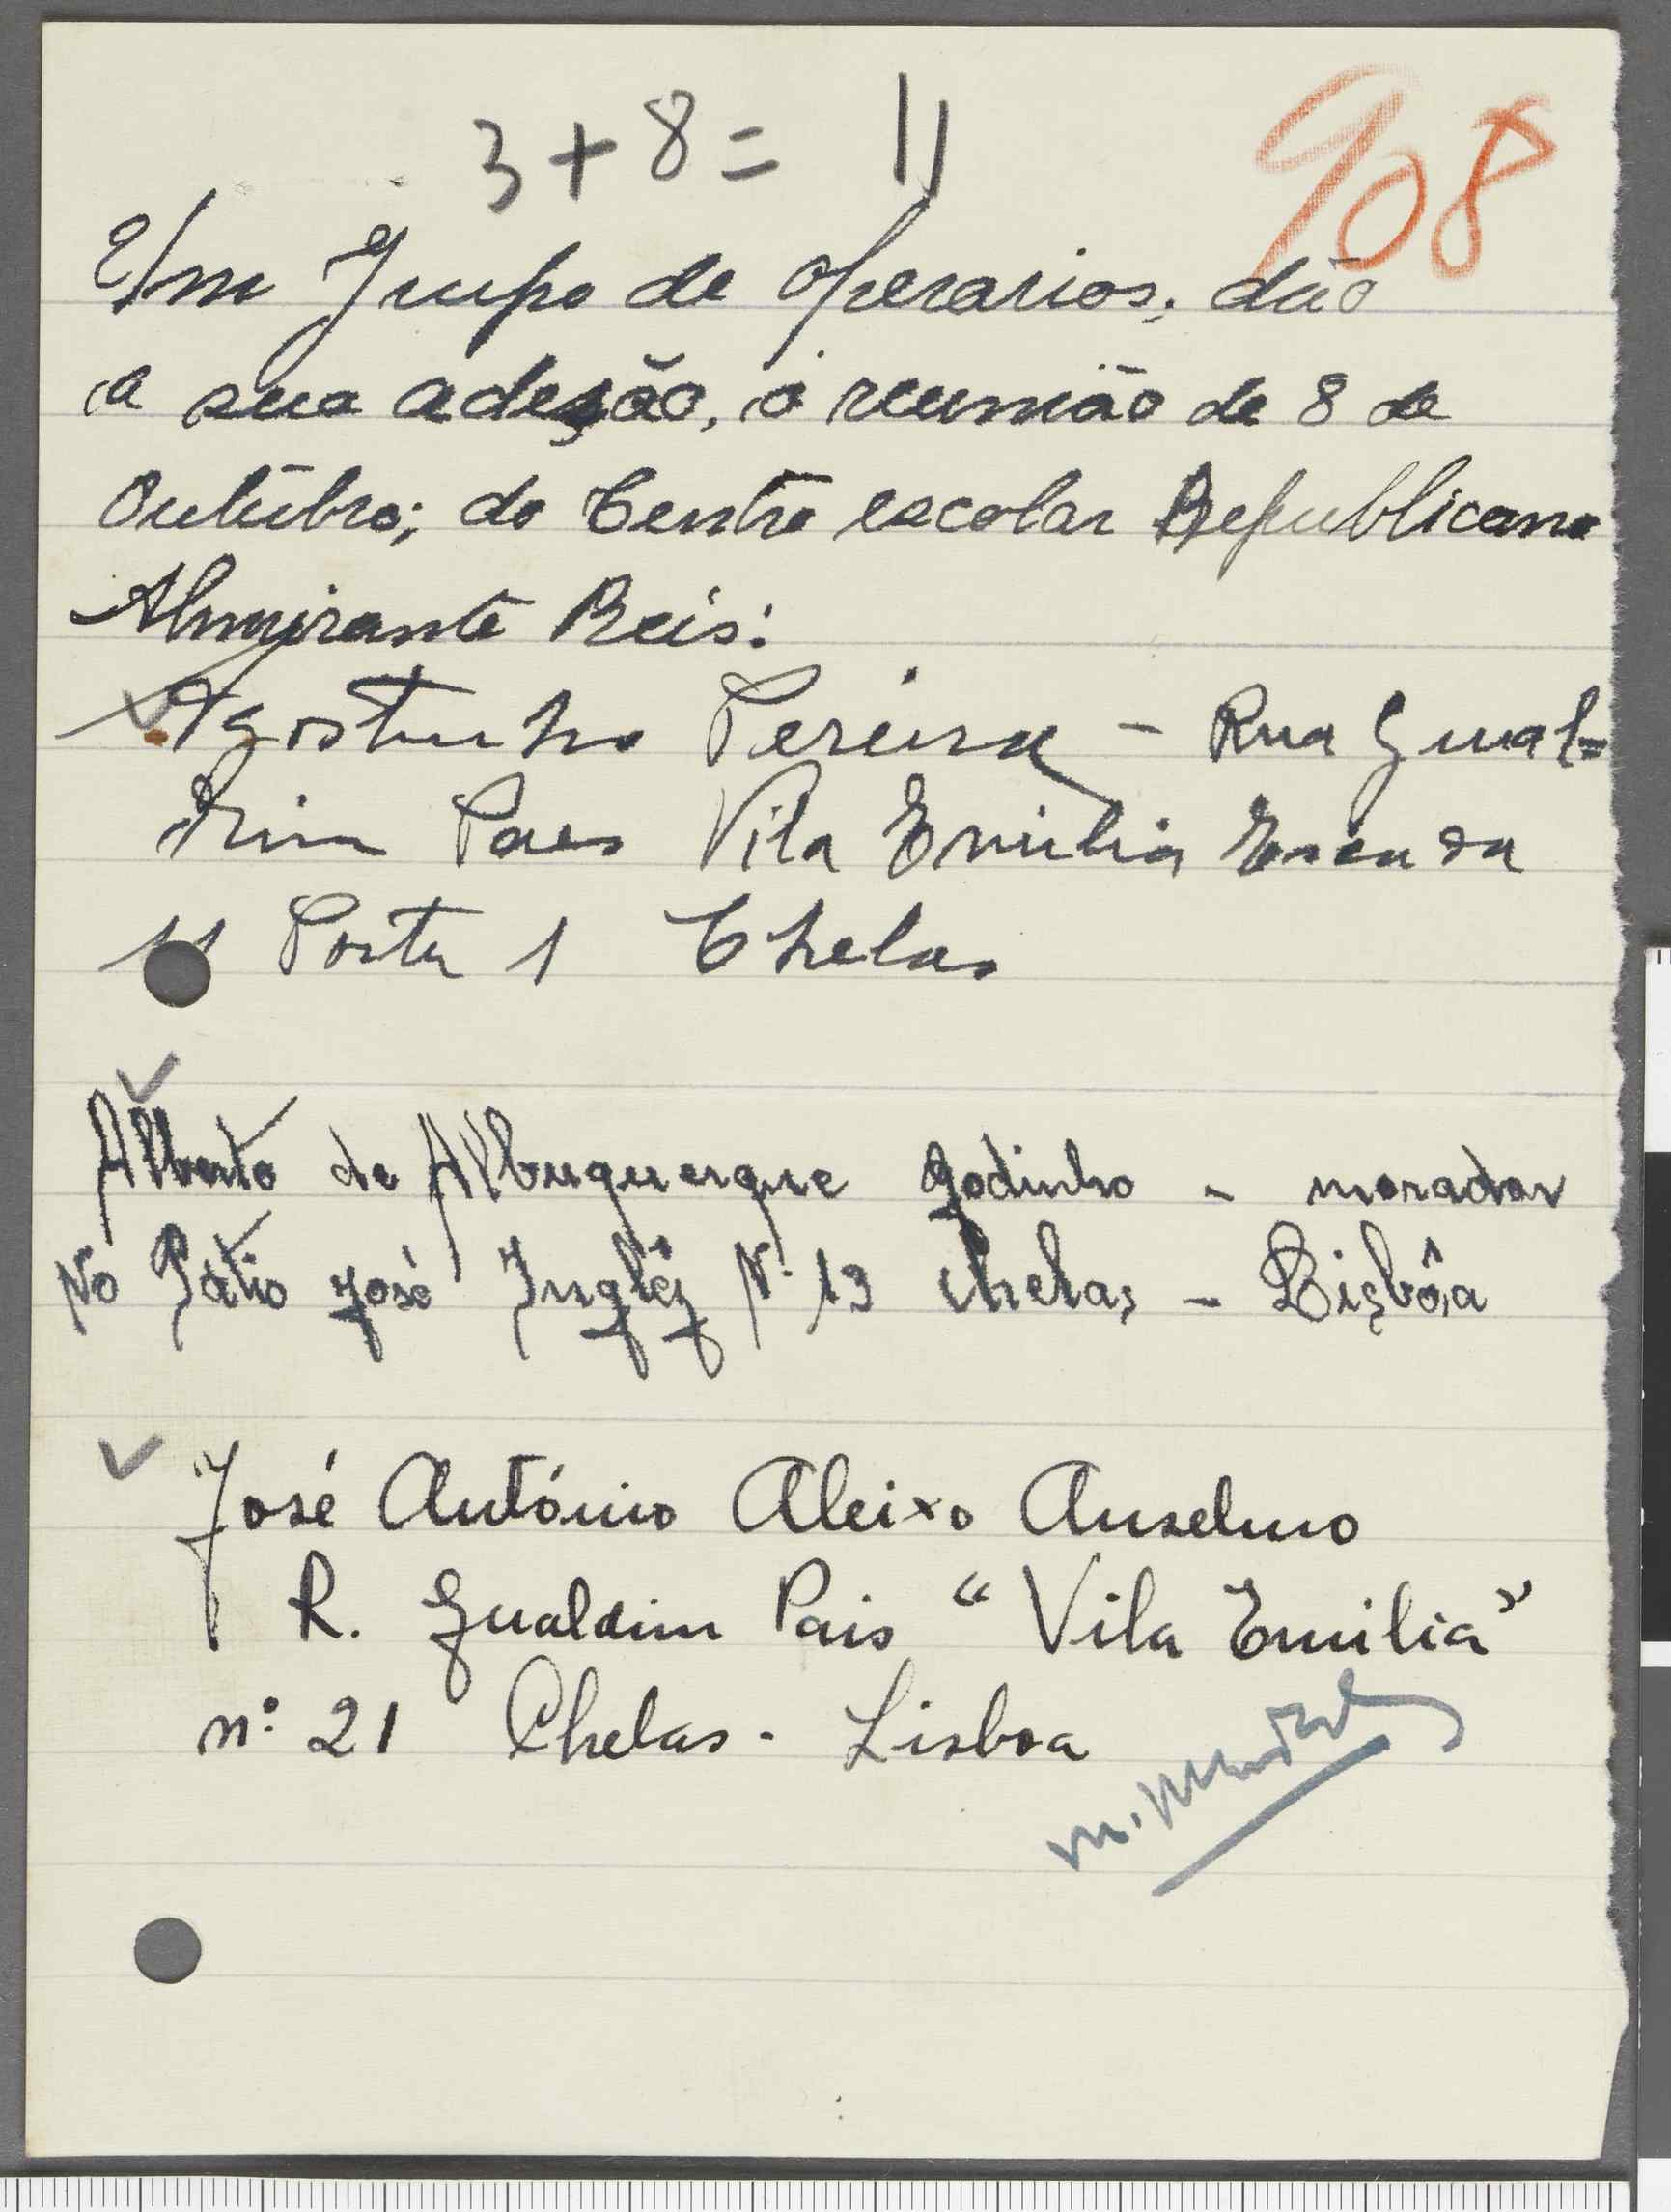 3 + 8 = 11
908
Um Grupo de Operarios; dão
a sua adesão, á reunião de 8 de
Outubro; do Centro escolar Republicano
Almirante Reis:
Agostinho Pereira - Rua Gual=
Dim Paes Vila Emilia Escada
11 Porta 1 Chelas
Alberto de Albuquerque Godinho - morador
No Pátio José Inglêz Nº 13 Chelas - Lisbôa
José António Aleixo Anselmo
R. Gualdim Pais "Vila Emilia"
nº 21 Chelas - Lisboa